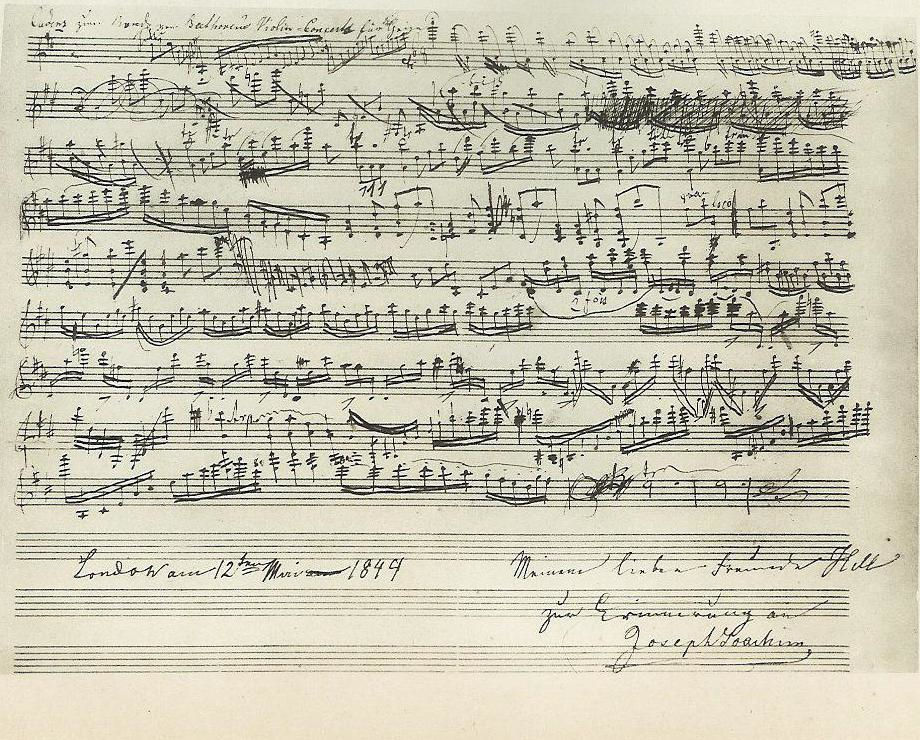 Cadenz zum Rondo von Beethovens Violin-Concerte für Geige
loco
London am 12ten Mai 1844
Meinem lieben Freunde Hill
zur Erinnerung an
Joseph Joachim